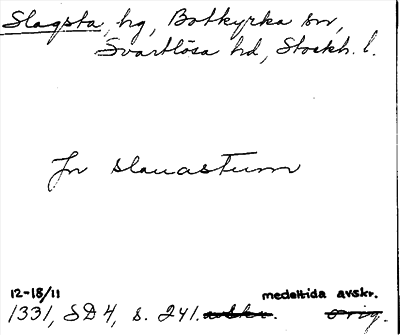 Slagsta, hg, Botkyrka sn,
Svartlösa hd, Stockh. l.
Jn slauastum
12-18/11 medeltida avskr.
1331, SD4, s. 241. avskr. orig.